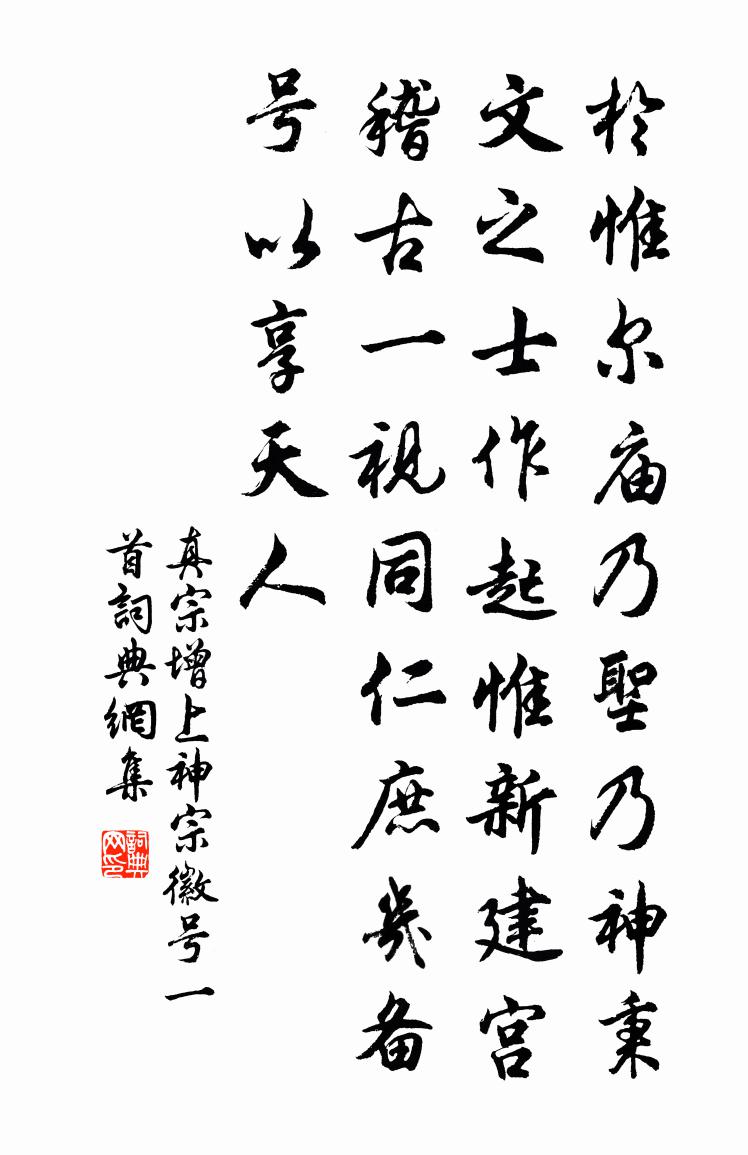 於惟尔庙乃聖乃神秉
文之士作起惟新建宫
稽古一視同仁庶幾备
号以享天人
真宗增上神宗徽号一
首詞典網集
詞典网印